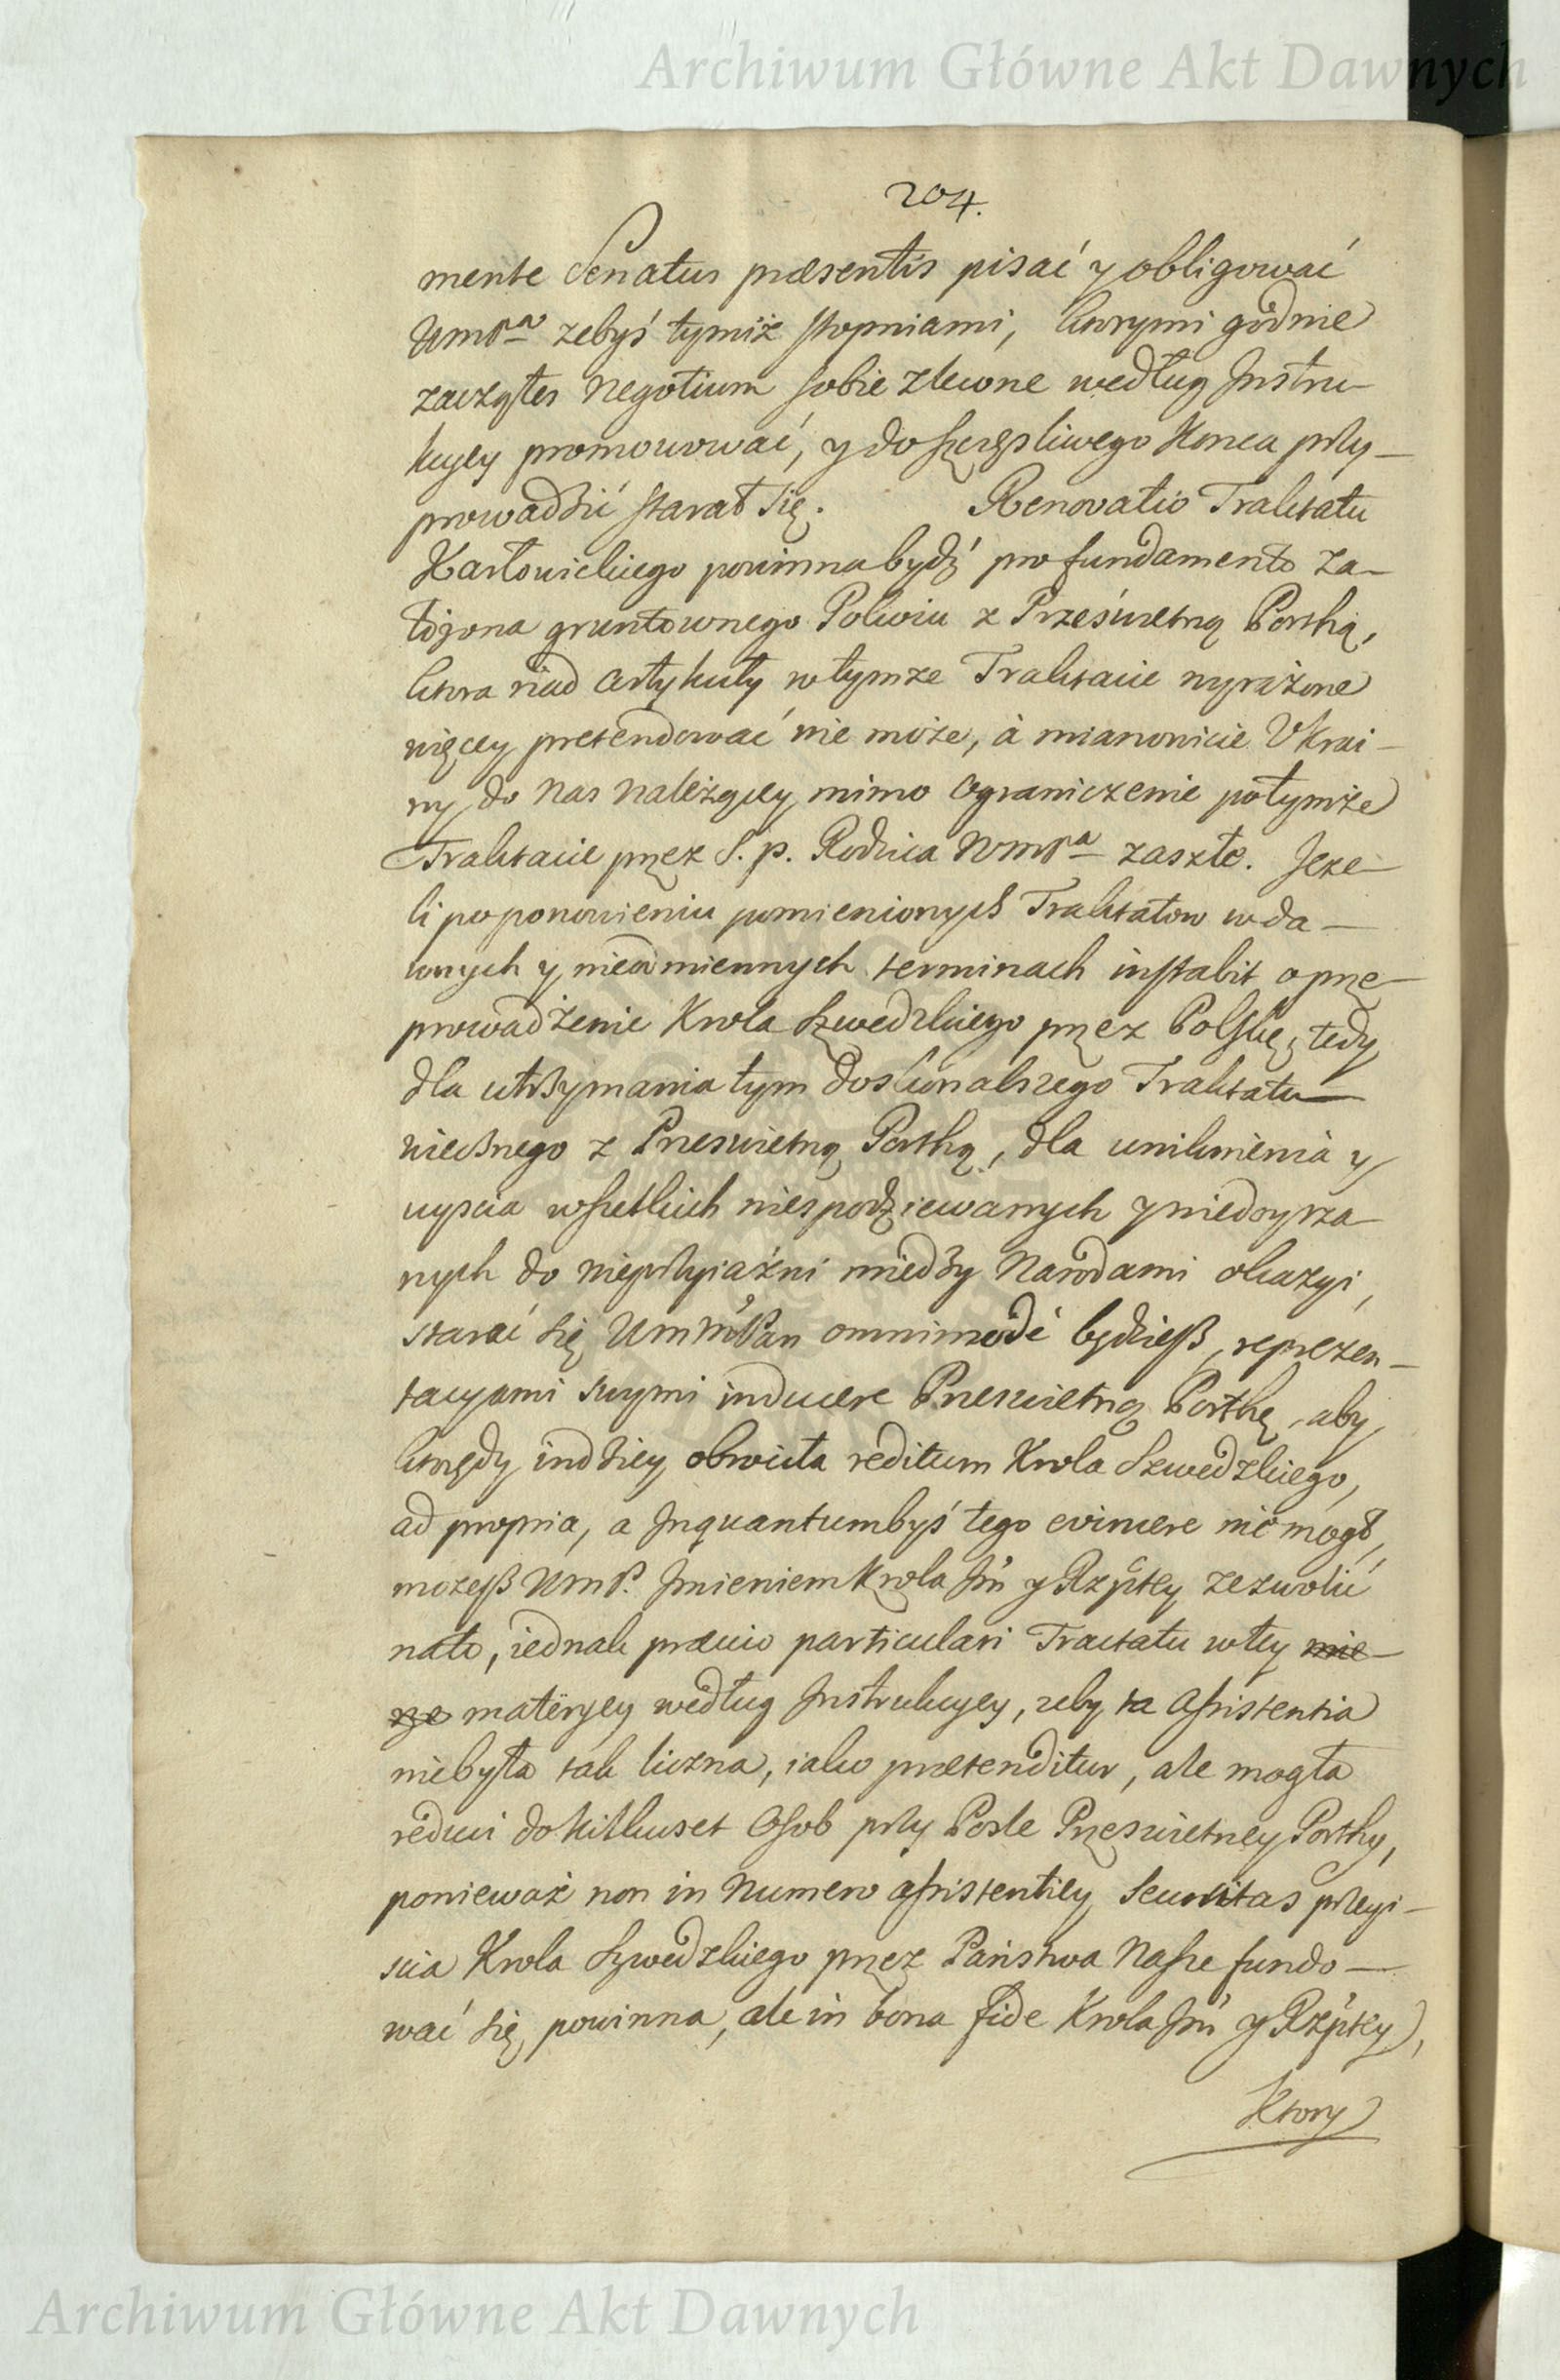 Archiwum Główne Akt Dawnych
204.
mente Senatus præsentis pisać y obligować
WmPa żebyś tymiż stopniami, ktorymi godnie
zacząłes negotium sobie zlecone według Instru-
kcyey promowować, y do szczęsliwego konca przy-
prowadzić starał się. Renovatio Traktatu
Karłowickiego powinna bydź pro fundamento za-
łożona gruntownego Pokoiu z Prześwietną Porthą,
ktora nad artykuły w tymze Traktacie wyrażone
więcey pretendować nie może, à mianowicie Ukrai-
ny do nas należącey mimo ograniczenie po tymże
Traktacie przez S. p. Rodzica WmPa zaszłe. Jeze-
li po ponowieniu pomienionych Traktatow w da-
wnych y nieodmiennych terminach instabit o prze-
prowadżenie Krola Szwedzkiego przez Polskę, tedy
dla utrzymania tym doskonalszego Traktatu
wiecznego z Przeswietną Porthą, dla uniknienia y
uyscia wszetkich niespodziewanych y niedoyrza-
nych do nieprzyiaźni miedzy Narodami okazyi,
starać się WmMPan omnimodè będziesz, reprezen-
tacyami swymi inducere Przeswietną Porthę, aby
ktorędy indziey obrociła reditum Krola Szwedzkiego,
ad propria, a Inquantumbyś tego evincere nie mogł,
możesz WmP. Imieniem Krola Jm y Rzptey zezwolić
nato, iednak præcio particulari Tractatu w tey mie-
rze materyey według Instrukcyey, zeby ta assistentia
niebyła tak liczna, iako prætenditur, ale mogła
reduci do kilkuset osob przy Posle Przeswietney Porthy,
ponieważ non in numero assistentiey securitas przeyi-
scia Krola Szwedzkiego przez Państwa Nasze fundo-
wać się powinna, ale in bona fide Krola Jm y Rzptey,
Ktory
Archiwum Główne Akt Dawnych